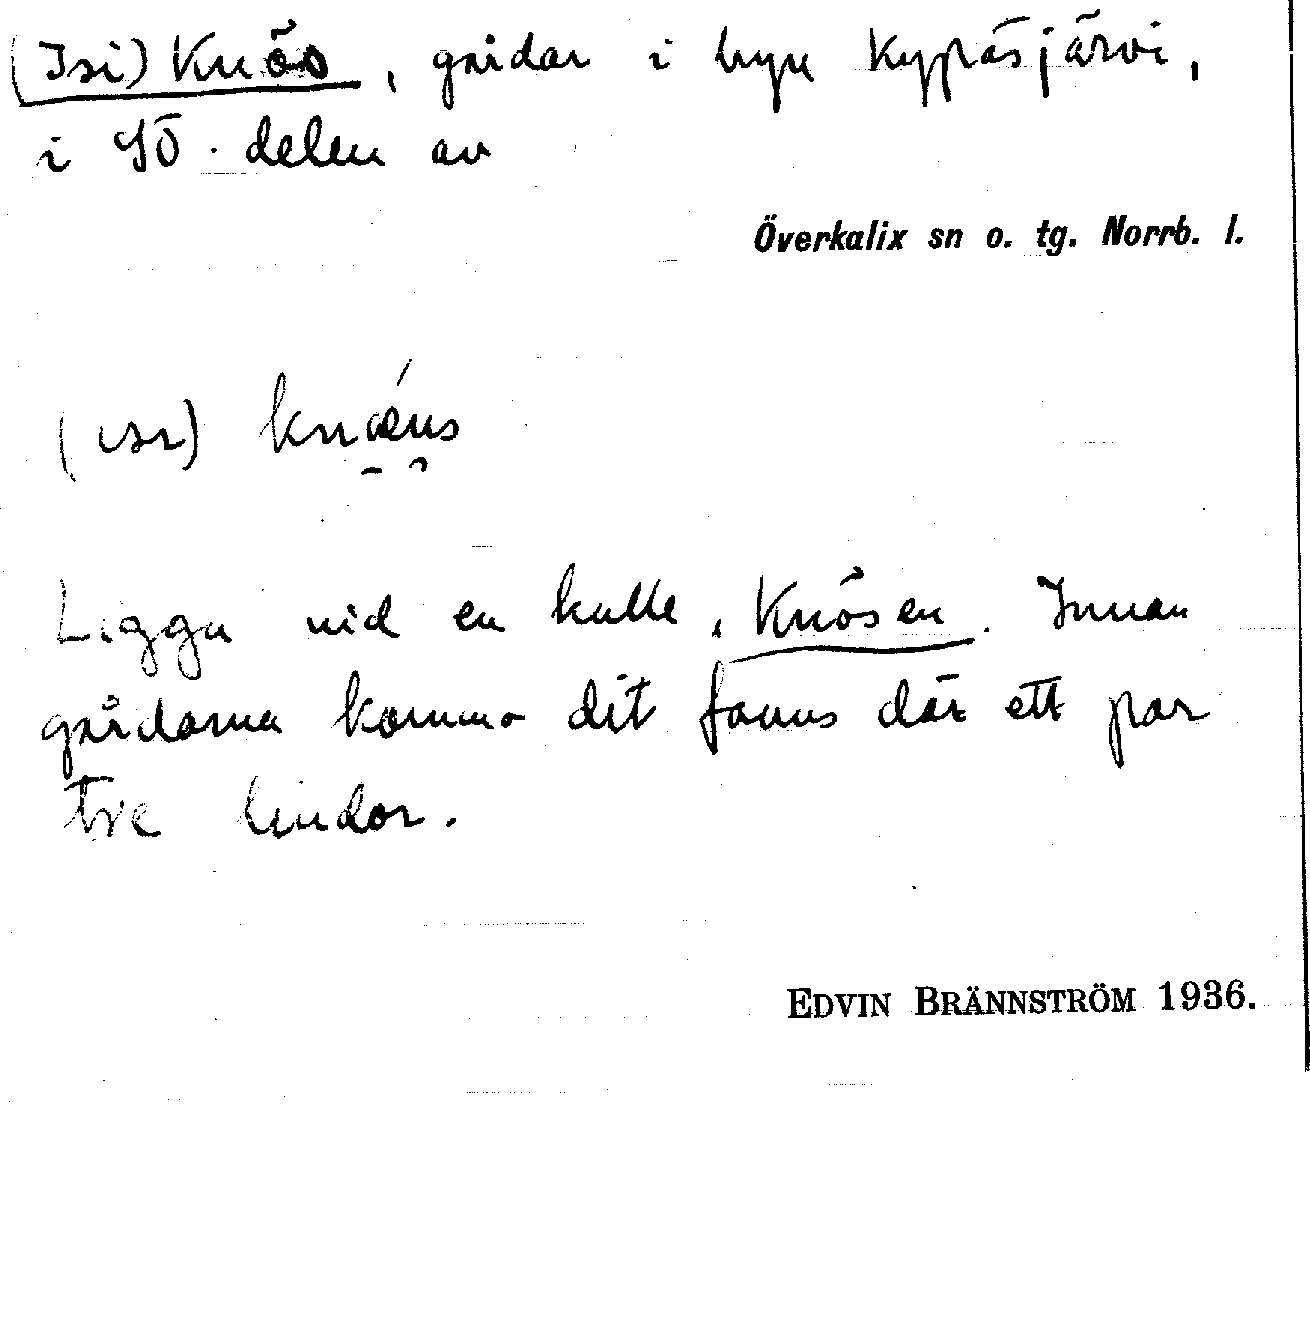 (Isi) Knös, gårdar i byn Kypasjärvi,
i SÖ-delen av
Överkalix sn o. tg. Norrb. l.
(ısı) knæus
Ligga vid en kulle, Knösen. Innan
gårdarna kommo dit fanns där ett par
tre lindor.
EDVIN BRÄNNSTRÖM 1936.